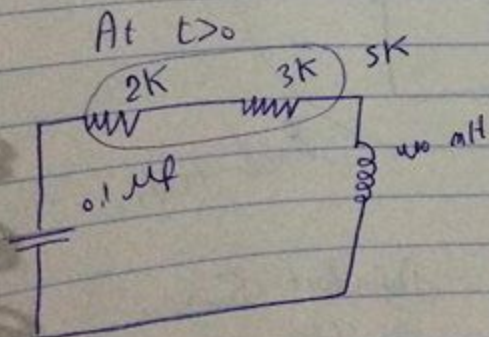 At t>0
2K 3K 5K
0.1 μf
mH